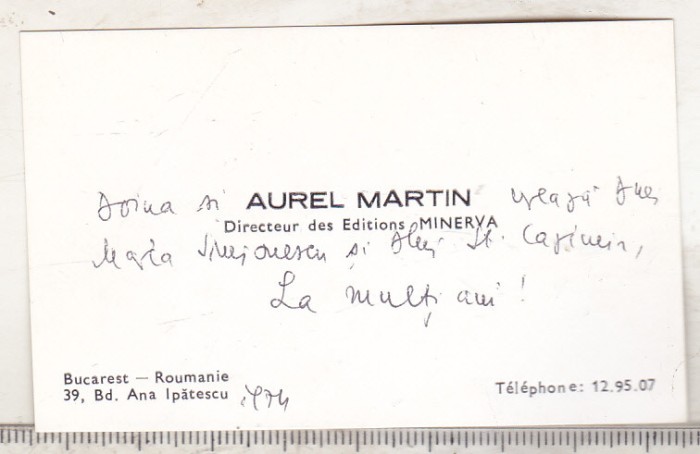 Doina și AUREL MARTIN urează Dnei
Directeur des Editions MINERVA
Marta Simionescu și Dlui St. Cazimir,
La mulți ani!
Bucarest — Roumanie
39, Bd. Ana Ipătescu 1974
Téléphone: 12.95.07